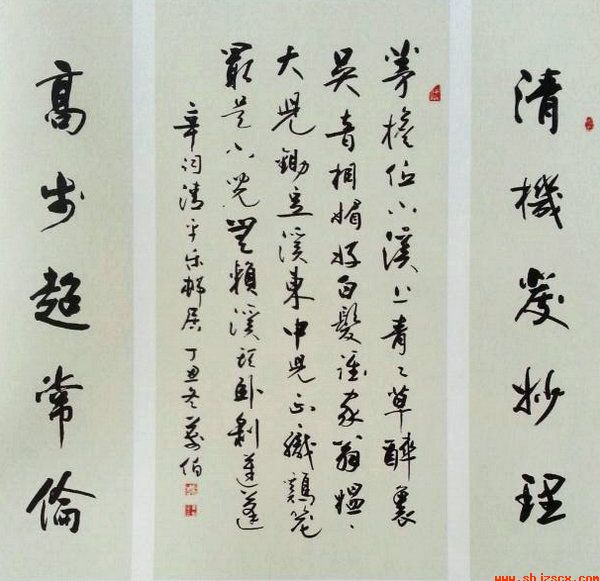 清機發妙理
茅檐低小溪上青〻草醉裏
吳音相媚好白髮誰家翁媼
大兒鋤豆溪東中兒正織鷄籠
最是小兒無賴溪頭卧剝蓮蓬
辛詞清平乐邨居 丁丑冬
高步超常倫